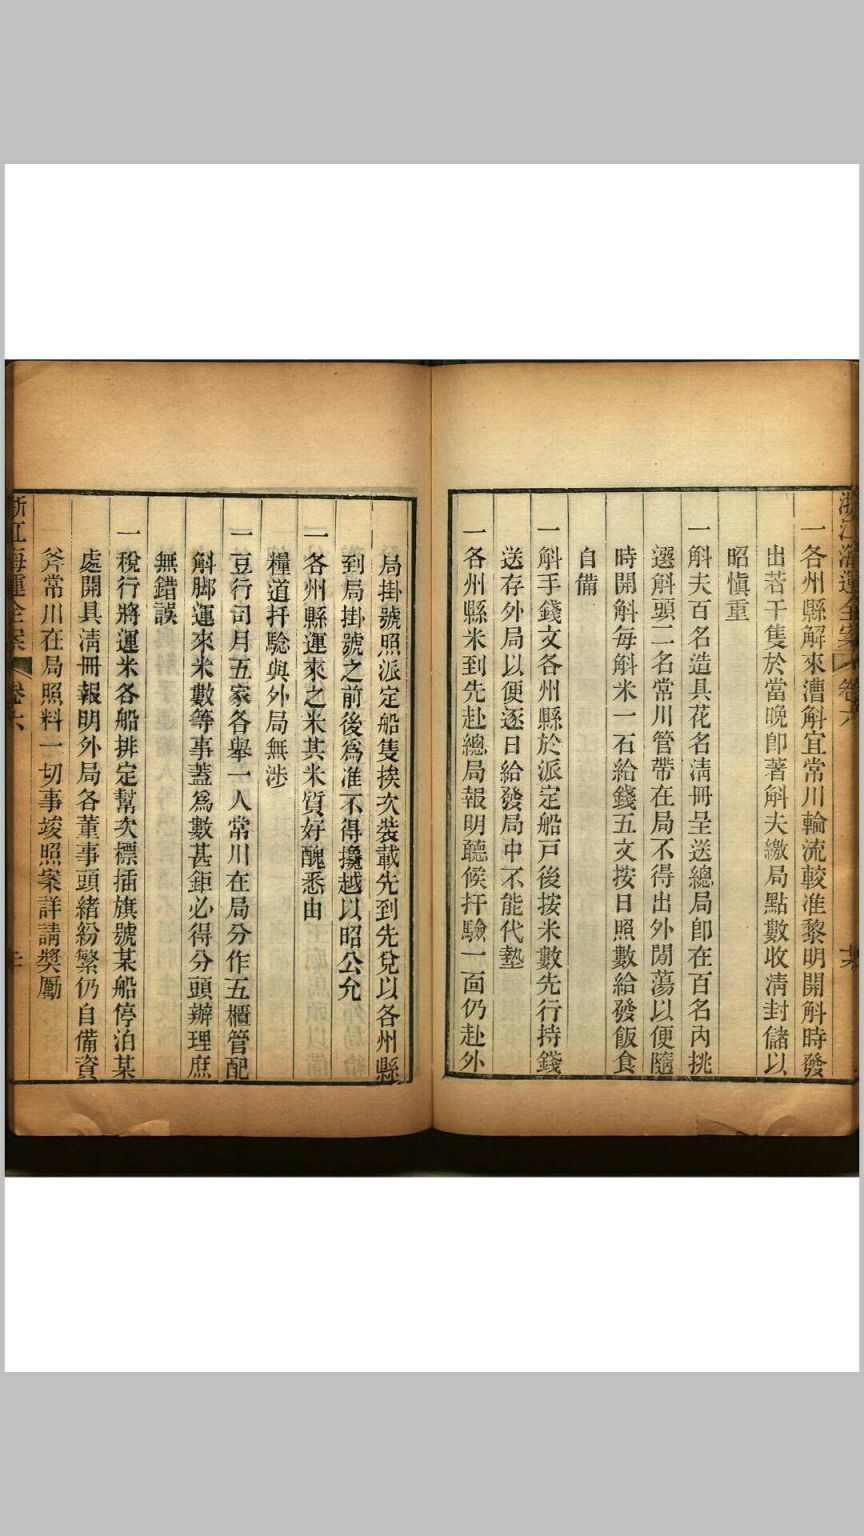 浙江海運全案 卷六
一各州縣解來漕斛宜常川輪流較准黎明開斛時發
出若干隻於當晚卽著斛夫繳局點數收淸封儲以
昭愼重
一斛夫百名造具花名淸冊呈送總局卽在百名內挑
選斛頭二名常川管帶在局不得出外閒蕩以便隨
時開斛每斛米一石給錢五文按日照數給發飯食
自備
一斛手錢文各州縣於派定船戸後按米數先行持錢
送存外局以便逐日給發局中不能代墊
一各州縣米到先赴總局報明聽候扦驗一面仍赴外
局掛號照派定船隻挨次裝載先到先兌以各州縣
到局掛號之前後爲准不得攙越以昭公允
一各州縣運來之米其米質好醜悉由
糧道扦驗與外局無涉
一豆行司月五家各舉一人常川在局分作五櫃管配
斛脚運來米數等事蓋爲數甚鉅必得分頭辦理庶
無錯誤
一稅行將運米各船排定幫次標插旗號某船停泊某
處開具淸冊報明外局各董事頭緒紛繁仍自備資
斧常川在局照料一切事竣照案詳請獎勵
浙江海運全案 卷六